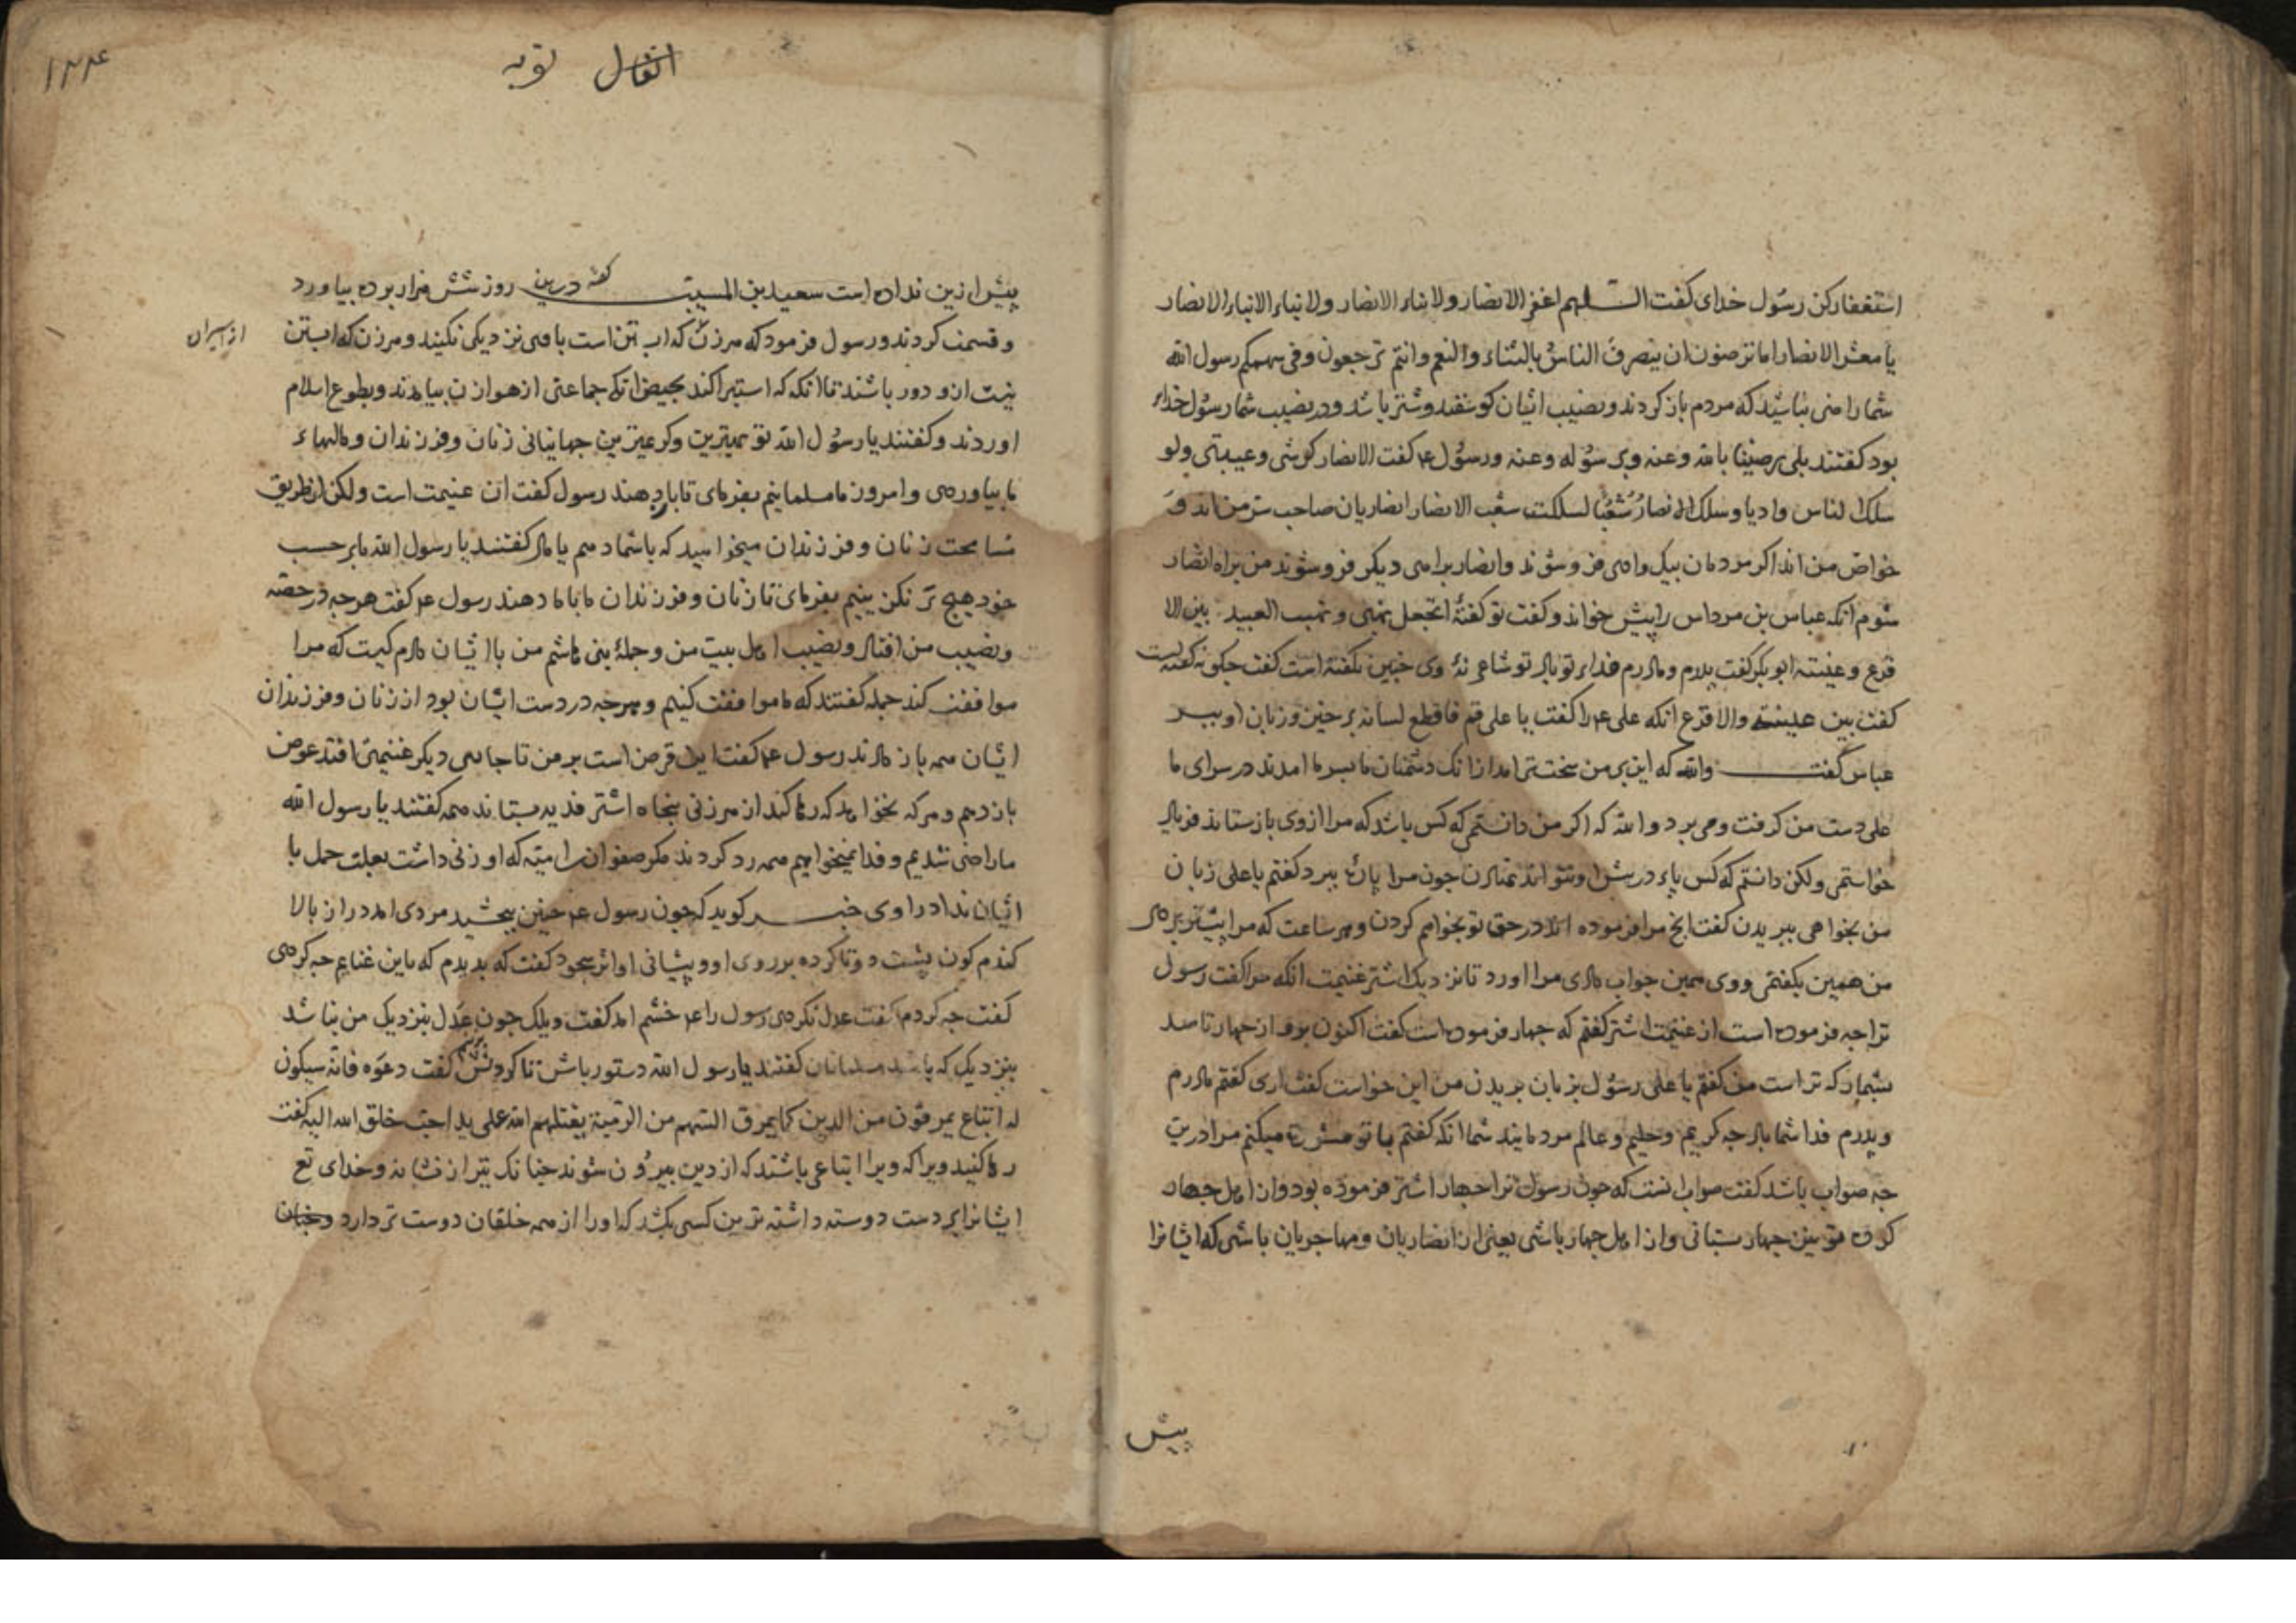 استغفار کن رسول خدای کفت اللهم اغفر الانصار ولابناء الانصار ولابناء الابناء الانصار
یا معشر الانصار اما ترضون ان ینصرف الناس بالشاء والنعم وانتم ترجعون وفی سهمکم رسول الله
شما راضی نباشید که مردم باز کردند ونصیب ایشان کوسفند وشتر باشد ودر نصیب شما رسول خدای
بود کفتند بلی رضینا بالله وعنه وبرسوله وعنه ورسول ع کفت الانصار کرشی وعیبتی ولو
سلک الناس وادیا وسلک الانصار شعبا لسلکت شعب الانصار انصاریان صاحب سر من اند و
خواص من اند اکر مردمان بیک وادی فرو شوند وانصار برامی دیکر فرو شوند من براه انصار
شوم انکه عباس بن مرداس را پیش خواند وکفت تو کفتهٔ اتجعل نهبی ونهب العبید بین الا
قرع وعیینه ابوبکر کفت پدرم ومادرم فداء تو باد تو شاعر نهٔ وی چنین نکفته است کفت چکونه کفته است
کفت بین عیینة والاقرع انکه علی ع را کفت یا علی قم فاقطع لسانه برخیز وزبان او ببر
عباس کفت والله که این بر من سخت تر امد از انک دشمنان ما بسر ما امدند در سرای ما
علی دست من کرفت ومی برد والله که اکر من دانستمی که کس باشد که مرا از وی بازستاند فریاد
خواستمی ولکن دانستم که کس پای در پیش او نتواند نهادن چون مرا پارهٔ ببرد کفتم یا علی زبان
من بخواهی ببریدن کفت انچ مرا فرموده اند در حق تو بخواهم کردن وهر ساعت که مرا پیشتر بردی
من همین بکفتمی ووی همین جواب دادی مرا اورد تا نزدیک اشتر غنیمت انکه مرا کفت رسول
ترا چه فرموده است از غنیمت اشتر کفتم که چهار فرموده است کفت اکنون برو از چهار تا صد
بشمار که تراست من کفتم یا علی رسول بزبان بریدن من این خواست کفت اری کفتم مادرم
وپدرم فدا شما باد چه کریم وحلیم وعالم مردمانید شما انکه کفتم با تو مشورت میکنم مرا درین
چه صواب باشد کفت صواب انست که چون رسول ترا چهار اشتر فرموده بود واز اهل چهار
کرده تو نیز چهار ستانی واز اهل چهار باشی یعنی از انصاریان ومهاجریان باشی که ایشانرا
پیش
۱۲۴
انفال توبه
پیش ازین نداده است سعید بن المسیب کفت درین روز شش هزار برده بیاورد
وقسمت کردند ورسول فرمود که هر زن که ابستن است با وی نزدیکی نکنید وهر زن که ابستن
از اسیران
نیست ازو دور باشند تا انکه که استبرا کند بحیض انکه جماعتی از هوازن بیامدند وبطوع اسلام
اوردند وکفتند یا رسول الله تو بهترین وکرمیترین جهانیانی زنان وفرزندان ومالهاء
ما بیاوردی وامروز ما مسلمانیم بفرمای تا باز دهند رسول کفت ان غنیمت است ولکن از طریق
مسامحت زنان وفرزندان میخواهید که باشما دهم یا مال کفتند یا رسول الله ما بر حسب
خود هیچ نکزینیم بفرمای تا زنان وفرزندان ما با ما دهند رسول ع کفت هر چه در حصه
ونصیب من افتاد ونصیب اهل بیت من وجملهٔ بنی هاشم من با ایشان دادم کیست که مرا
موافقت کند جمله کفتند که ما موافقت کنیم وهر چه در دست ایشان بود از زنان وفرزندان
ایشان همه باز دادند رسول ع کفت این قرض است بر من تا جایی دیکر غنیمتی افتد عوض
باز دهم وهر که نخواهد که رها کند از هر زنی پنجاه اشتر فدیه بستاند همه کفتند یا رسول الله
ما راضی شدیم وفدا نمیخواهیم همه رد کردند مکر صفوان امیّه که او زنی داشت بعلت حمل با
ایشان نداد راوی خبر کوید که چون رسول ع حنین ببخشید مردی امد دراز بالا
کندم کون پشت دوتا کرده بر روی او وپیشانی او اثر سجود کفت که بدیدم که باین غنایم چه کردی
کفت چه کردم کفت عدل نکردی رسول را ع خشم امد کفت ویلک چون عدل بنزدیک من نباشد
بنزدیک که باشد مسلمانان کفتند یا رسول الله دستور باش تا کردنش بزنیم کفت دعوه فانه سیکون
له اتباع یمرقون من الدین کما یمرق السهم من الرمیة یقتلهم الله علی ید احب خلق الله الیه کفت
رها کنید ویرا که ویرا اتباعی باشند که از دین بیرون شوند چنانک تیر از نشانه وخدای تع
ایشانرا بر دست دوسته داشته ترین کسی بکشد که اورا از همه خلقان دوست تر دارد وچنان